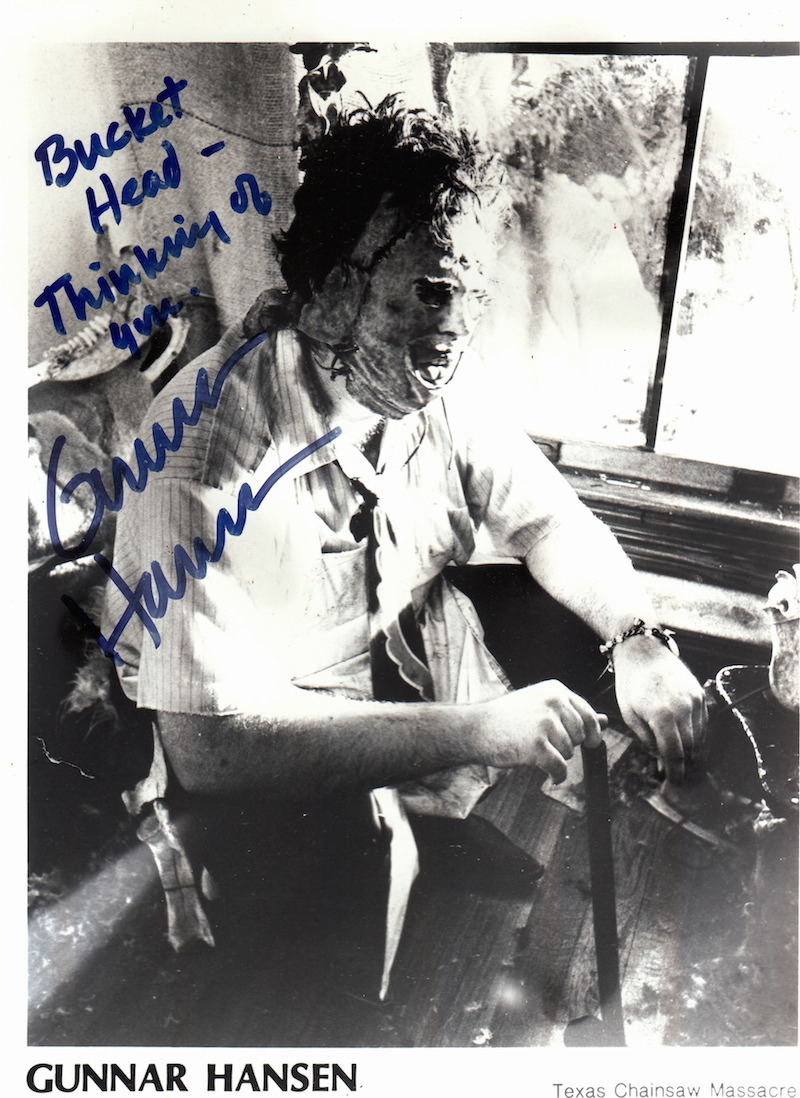 Bucket
Head -
Thinking of
you.
Gunnar
Hansen
GUNNAR HANSEN
Texas Chainsaw Massacre